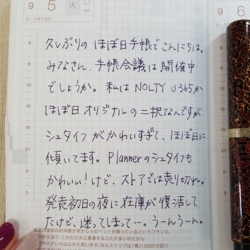 9 5 火
久しぶりの ほぼ日手帳でこんにちは。
みなさん、手帳会議は開催中
でしょうか。 私は NOLTY U365か
ほぼ日オリジナルの二択なんですが
シュタイフがかわいすぎて、ほぼ日に
傾いてます。Plannerのシュタイフも
かわいい！けど、ストアでは売り切れ。
発売初日の夜に在庫が復活して
たけど、迷ってしまって…。うーんうーん。